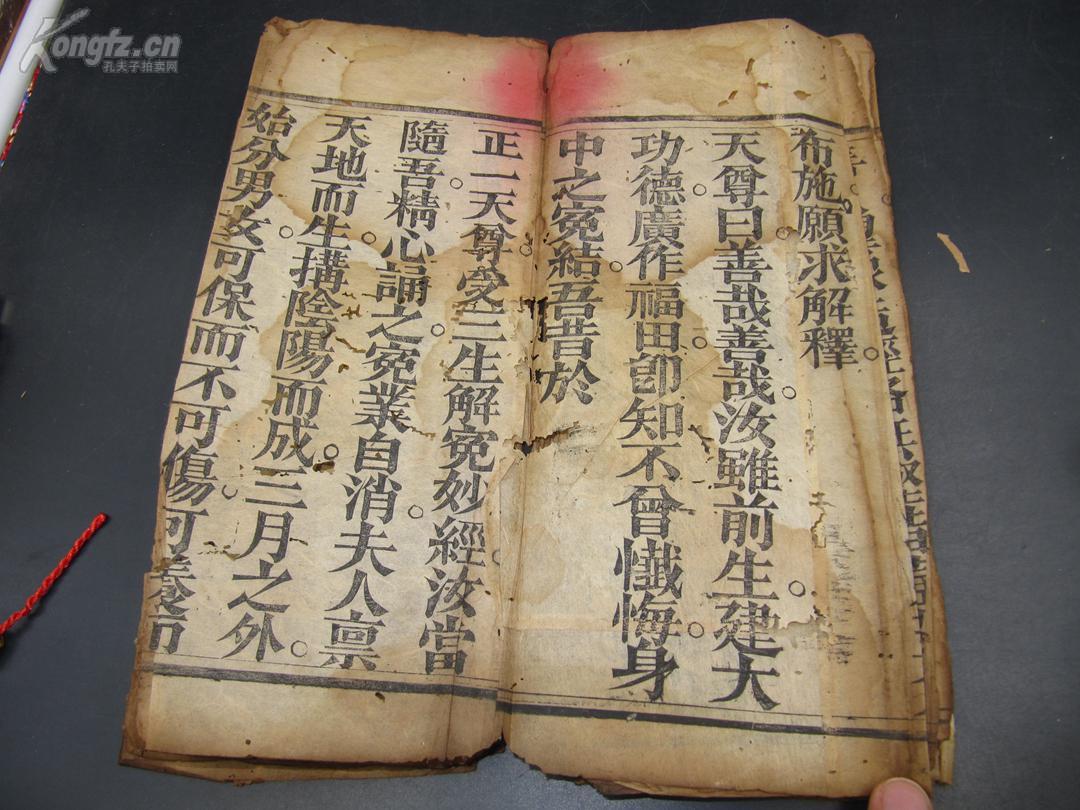 Kongfz.cn
孔夫子拍卖网
布施。願求解釋。
天尊曰善哉善哉。汝雖前生。建大
功德。廣作福田。卽知不曾懺悔。身
中之寃結。吾昔於
正一天尊。受三生解寃妙經。汝當
隨吾精心誦之。寃業自消。夫人禀
天地而生。搆陰陽而成。三月之外。
始分男女。可保而不可傷。可養而